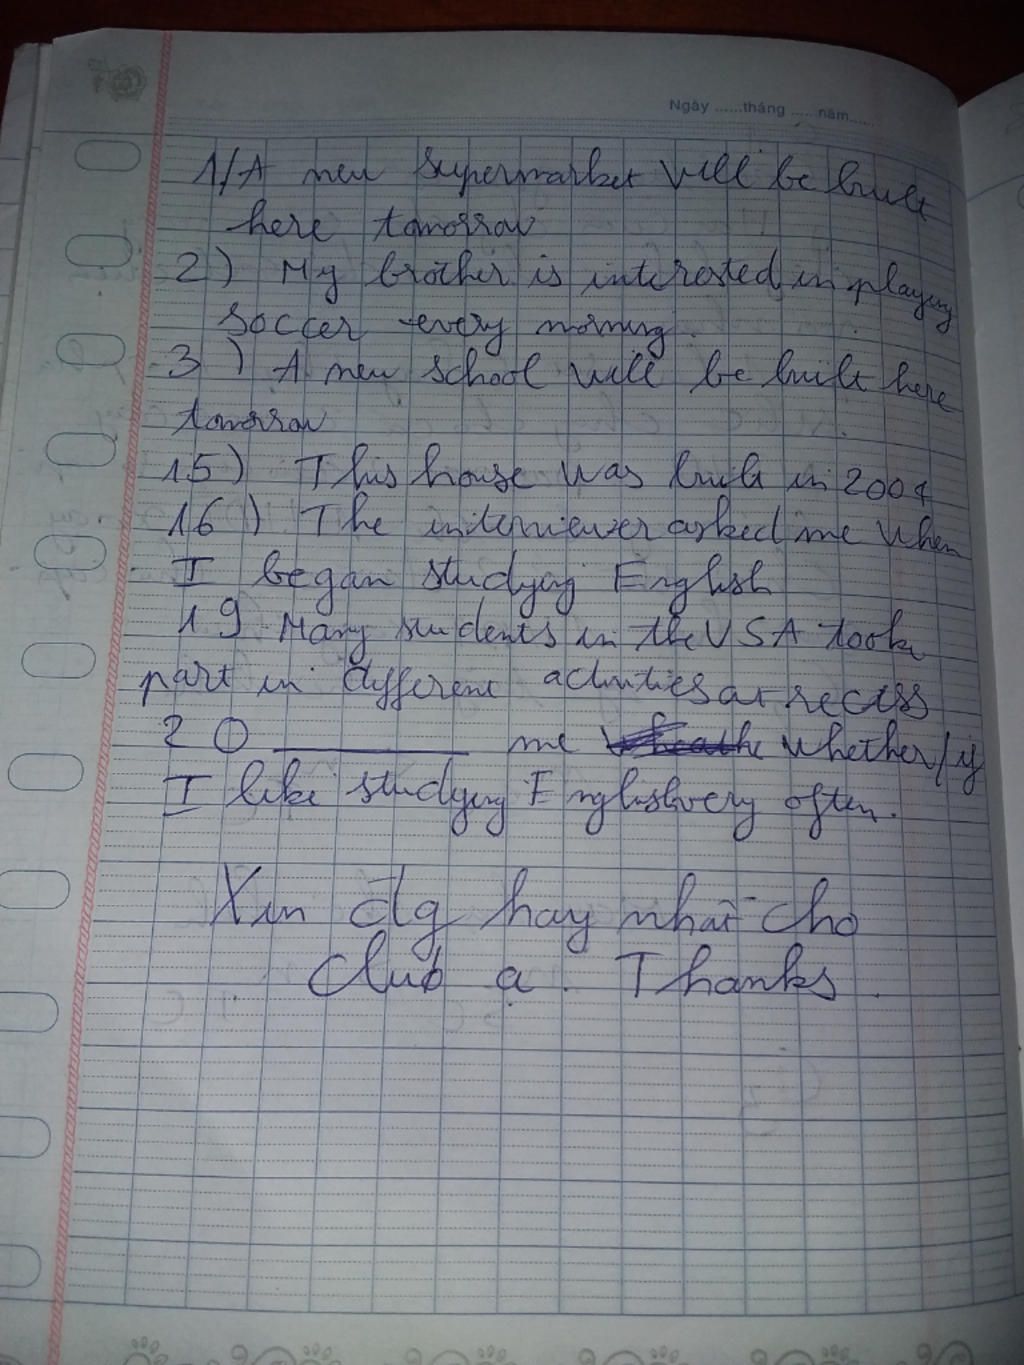 Ngày ......tháng ......năm......
1/A new supermarket will be built
here tomorrow
2) My brother is interested in playing
soccer every morning.
3) A new school will be built here
tomorrow
15) This house was built in 2004
16) The interviewer asked me when
I began studying English
19 Many students in the USA took
part in different activities at recess
20 ________ me whether/if
I like studying English very often.
Xin đg hay nhất cho
Club ạ. Thanks.